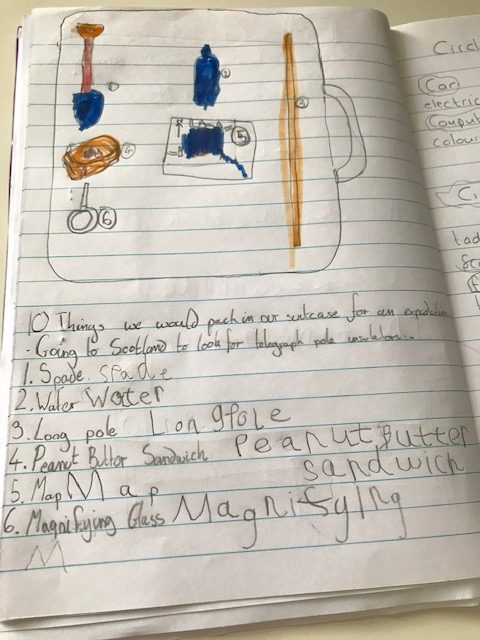 1
2
3
4
5
6
10 Things we would pack in our suitcase for an expedition
- Going to Scotland to look for telegraph pole insulators...
1. Spade spade
2. Water Water
3. Long pole Liongpole
4. Peanut Butter Sandwich Peanut Butter
sandwich
5. Map Map
6. Magnifying Glass Magnifying
M
Car
electric